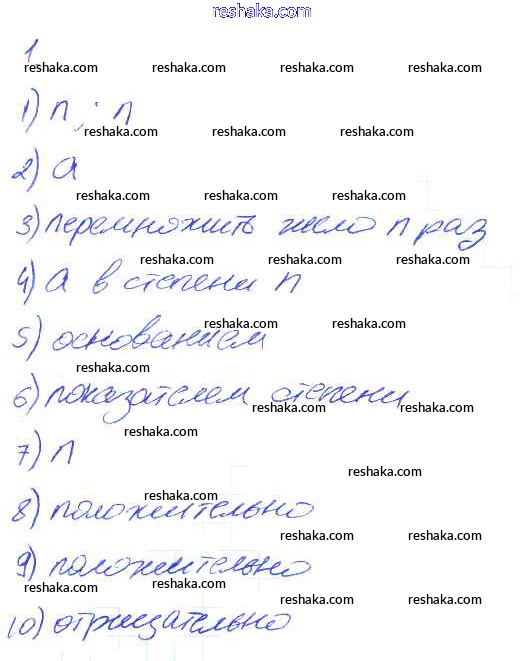 www.reshaka.com
1
reshaka.com reshaka.com reshaka.com reshaka.com
1) n ; n
reshaka.com reshaka.com reshaka.com
2) a
reshaka.com reshaka.com reshaka.com
3) перемножить число n раз
reshaka.com reshaka.com reshaka.com
4) a в степени n
reshaka.com reshaka.com
5) основанием
reshaka.com
6) показателем степени
reshaka.com reshaka.com
reshaka.com
7) n
reshaka.com
reshaka.com
8) положительно
reshaka.com reshaka.com
9) положительно
reshaka.com reshaka.com reshaka.com
10) отрицательно
reshaka.com reshaka.com